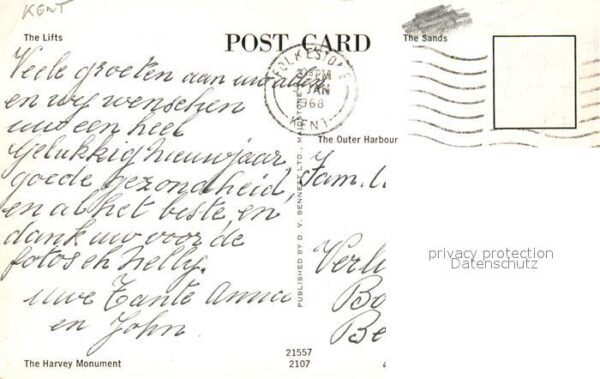 KENT
The Lifts
POST CARD
The Sands
FOLKESTONE
PM
JAN
1968
KENT
The Outer Harbour
Veele groeten aan uw allen
en wij wenschen
uw een heel
gelukkig nieuwjaar
goede gezondheid,
en al het beste, en
dank uw voor de
fotos eh helly.
uwe Tante Annie
en John
PUBLISHED BY D. V. BENNETT LTD., MAIDSTONE
Fam.
Verl
Bo
Be
privacy protection
Datenschutz
The Harvey Monument
21557
2107